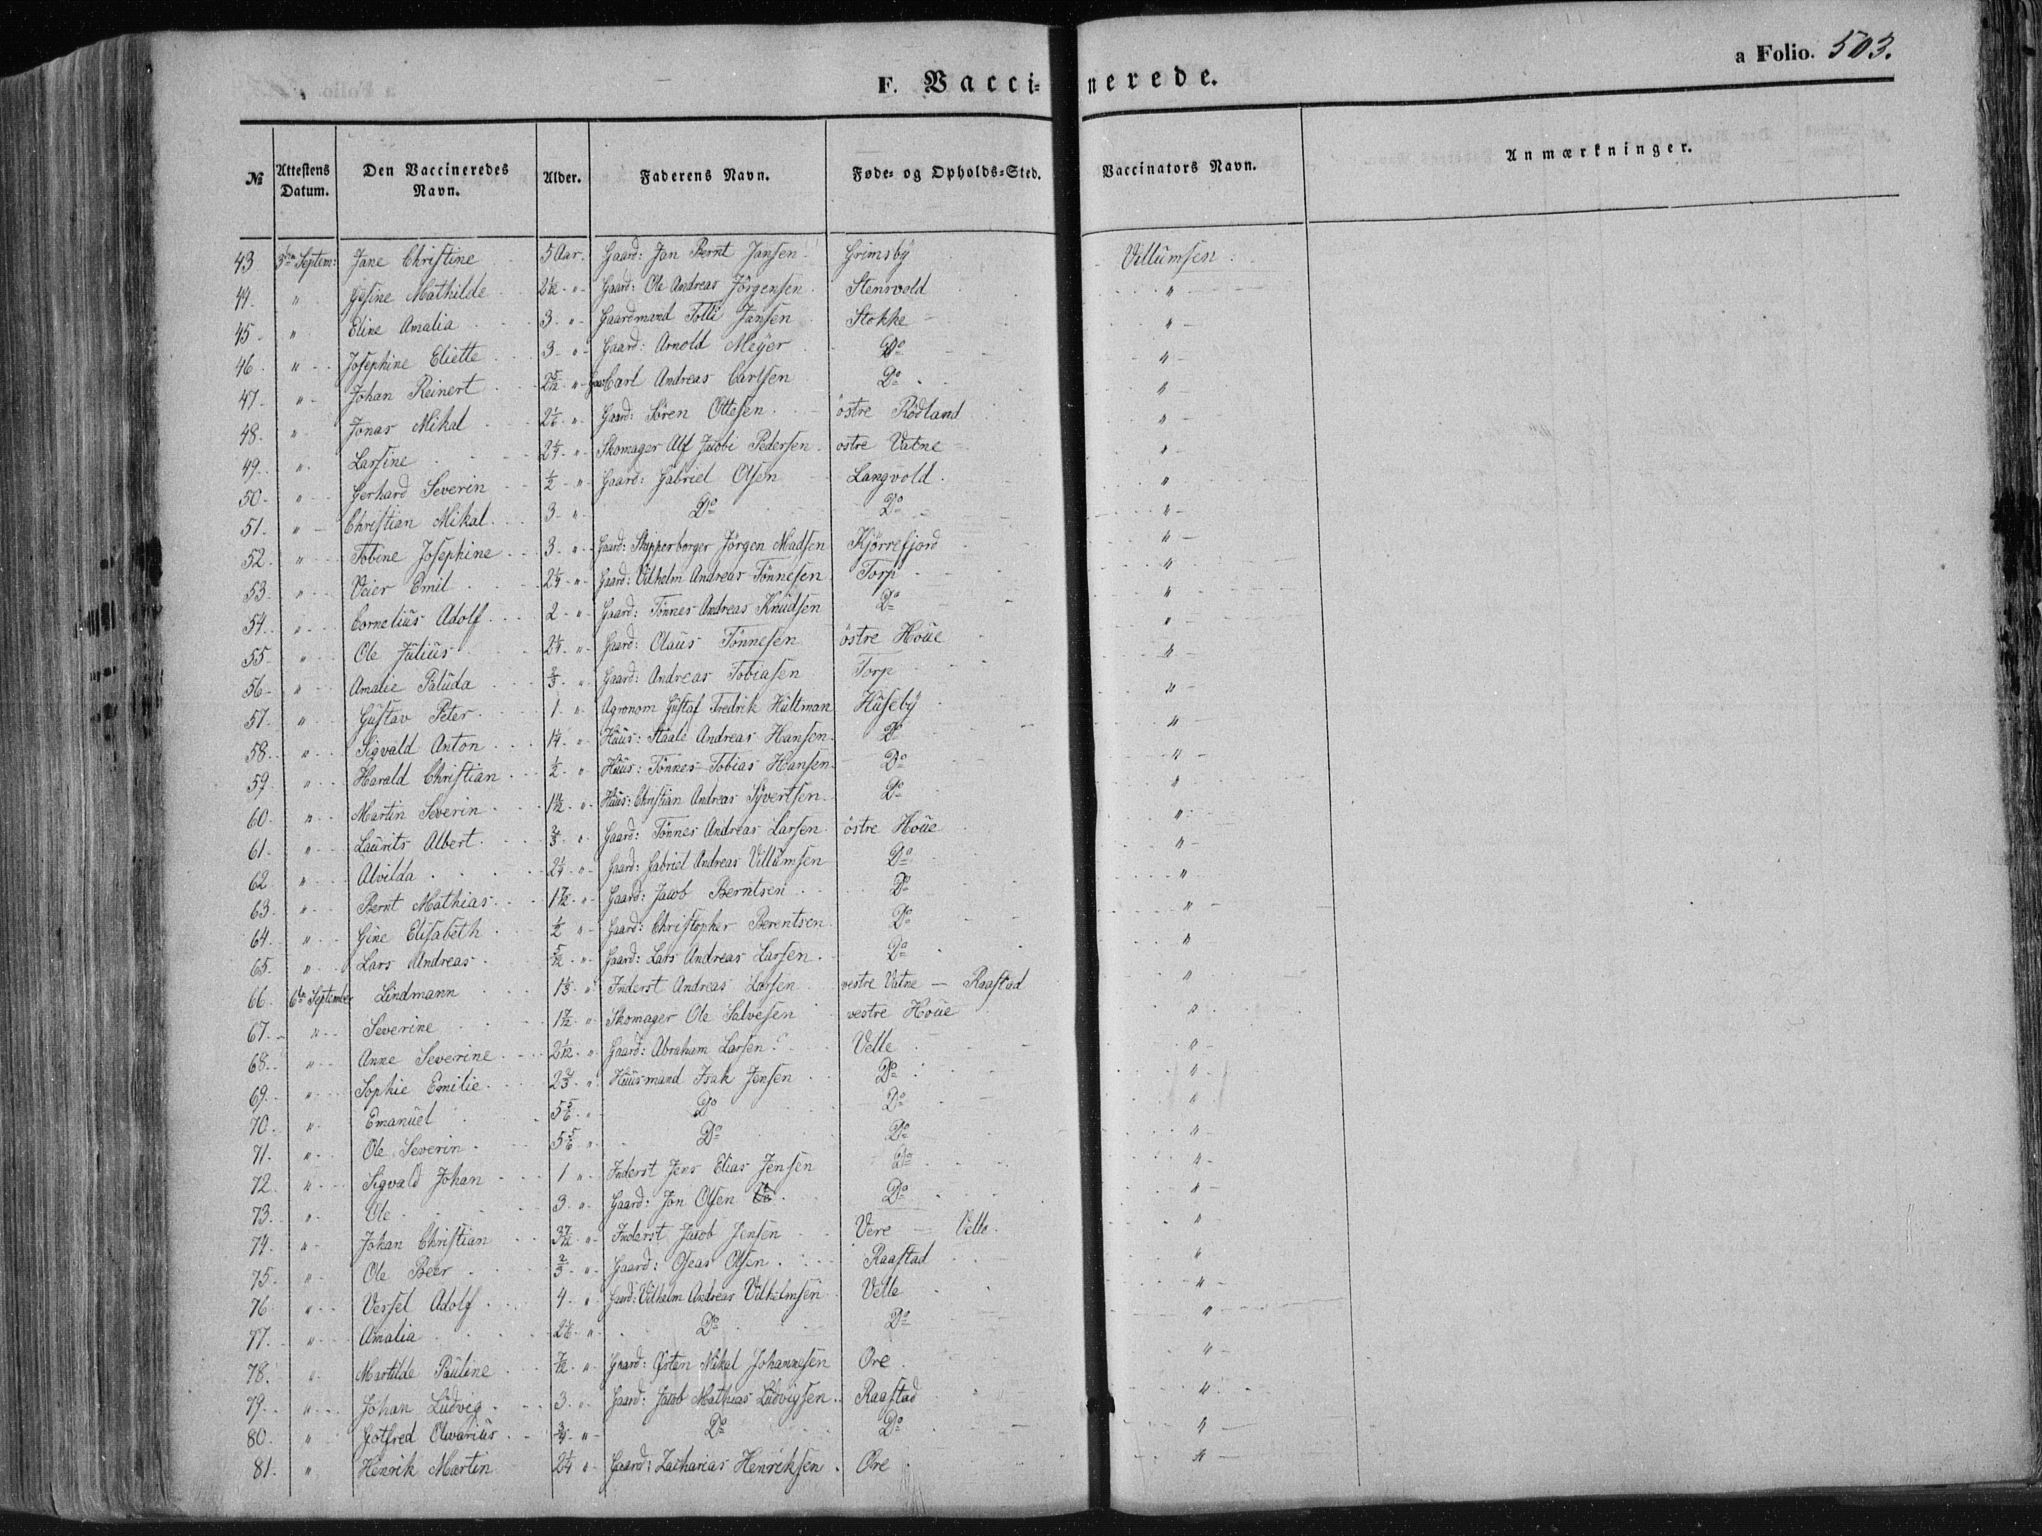 a Folio. 503.
F. Vaccinerede.
№ Attestens Datum. Den Vaccineredes Navn. Alder. Faderens Navn. Føde- og Opholds-Sted. Vaccinators Navn. Anmærkninger.
43 5te Septem: Jane Christine 5 Aar. Gaard: Jan Bernt Jansen Grimsby Villumsen
44. " Gesine Mathilde " Gaard: Ole Andreas Jörgensen Stensvold "
45 " Eline Amalia 3 " Gaardmand Tolli Jansen Stokke "
46 " Josephine Eliette 3 " Gaard: Arnold Meyer Do "
47 " Johan Reinert 2 5/12 " Carl Andreas Carlsen Do "
48 " Jonas Mikal 2 1/6 " Gaard: Sören Ottesen östre Rödland "
49 " Larsine 2 1/4 " Skomager Alf Jacobi Pedersen ostre Vatne "
50 " Gerhard Severin 1/2 " Gaard: Gabriel Olsen Langvold "
51 " Christian Mikal 3 " Do Do "
52 " Tobine Josephine 3 " Gaard: Skipperborger Jörgen Madsen Kjörrefjord "
53 " Veier Emil 2 1/4 " Gaard: Vilhelm Andreas Tönnesen Torp "
54 " Cornelius Adolf 2 " Gaard: Tönnes Andreas Knudsen Do "
55 " Ole Julius 2 1/4 " Gaard: Olaus Tönnesen östre Houe "
56 " Amalie Paluda 2/3 " Gaard: Andreas Tobiasen Torp "
57 " Gustav Peter 1 " Agronom Gustaf Fredrik Hultman Huseby "
58 " Sigvald Anton 1 1/4 " Huus: Staale Andreas Hansen Do "
59 " Harald Christian 1/2 " Huus: Tönnes Tobias Hansen Do "
60 " Martin Severin " Huus: Christian Andreas Syvertsen Do "
61 " Laurits Albert " Gaard: Tönnes Andreas Larsen östre Houe "
62 " Alvilda 2 1/4 " Gaard: Gabriel Andreas Villumsen Do "
63 " Bernt Mathias 1 7/12 " Gaard: Jacob Berntsen Do "
64 " Gine Elisabeth 1/2 " Gaard: Christopher Berentsen Do "
65 " Lars Andreas 5/12 " Gaard: Lars Andreas Larsen Do "
66 6te September Lindmann 1 1/3 " Inderst Andreas Larsen vestre Vatne — Raastad "
67 " Severine 1 7/12 " Skomager Ole Salvesen vestre Houe "
68 " Anne Severine 2 1/12 " Gaard: Abraham Larsen Velle "
69 " Sophie Emilie 2 2/3 " Huusmand Isak Jensen Do "
70 " Emanuel 5 5/6 " Do Do "
71 " Ole Severin 5 5/6 " Do Do "
72 " Sigvald Johan 1 " Inderst Jens Elias Jensen Do "
73 " Ole 3 " Gaard: Jon Olsen Do "
74 " Johan Christian 3 7/12 " Inderst Jacob Jensen Vere — Velle "
75 " Ole Beer 2/3 " Gaard: Oseas Olsen Raastad "
76 " Versel Adolf 4 " Gaard: Vilhelm Andreas Vilhelmsen Velle "
77 " Amalia 2 1/6 " Do Do "
78 " Martilde Pauline 7/12 " Gaard: Østen Mikal Johannesen Ore "
79 " Johan Ludvig 3 " Gaard: Jacob Mathias Ludvigsen Raastad "
80 " Gotfred Olvarius 3/4 " Do Do "
81 " Henrik Martin 2 1/4 " Gaard: Zacharias Henriksen Ore "